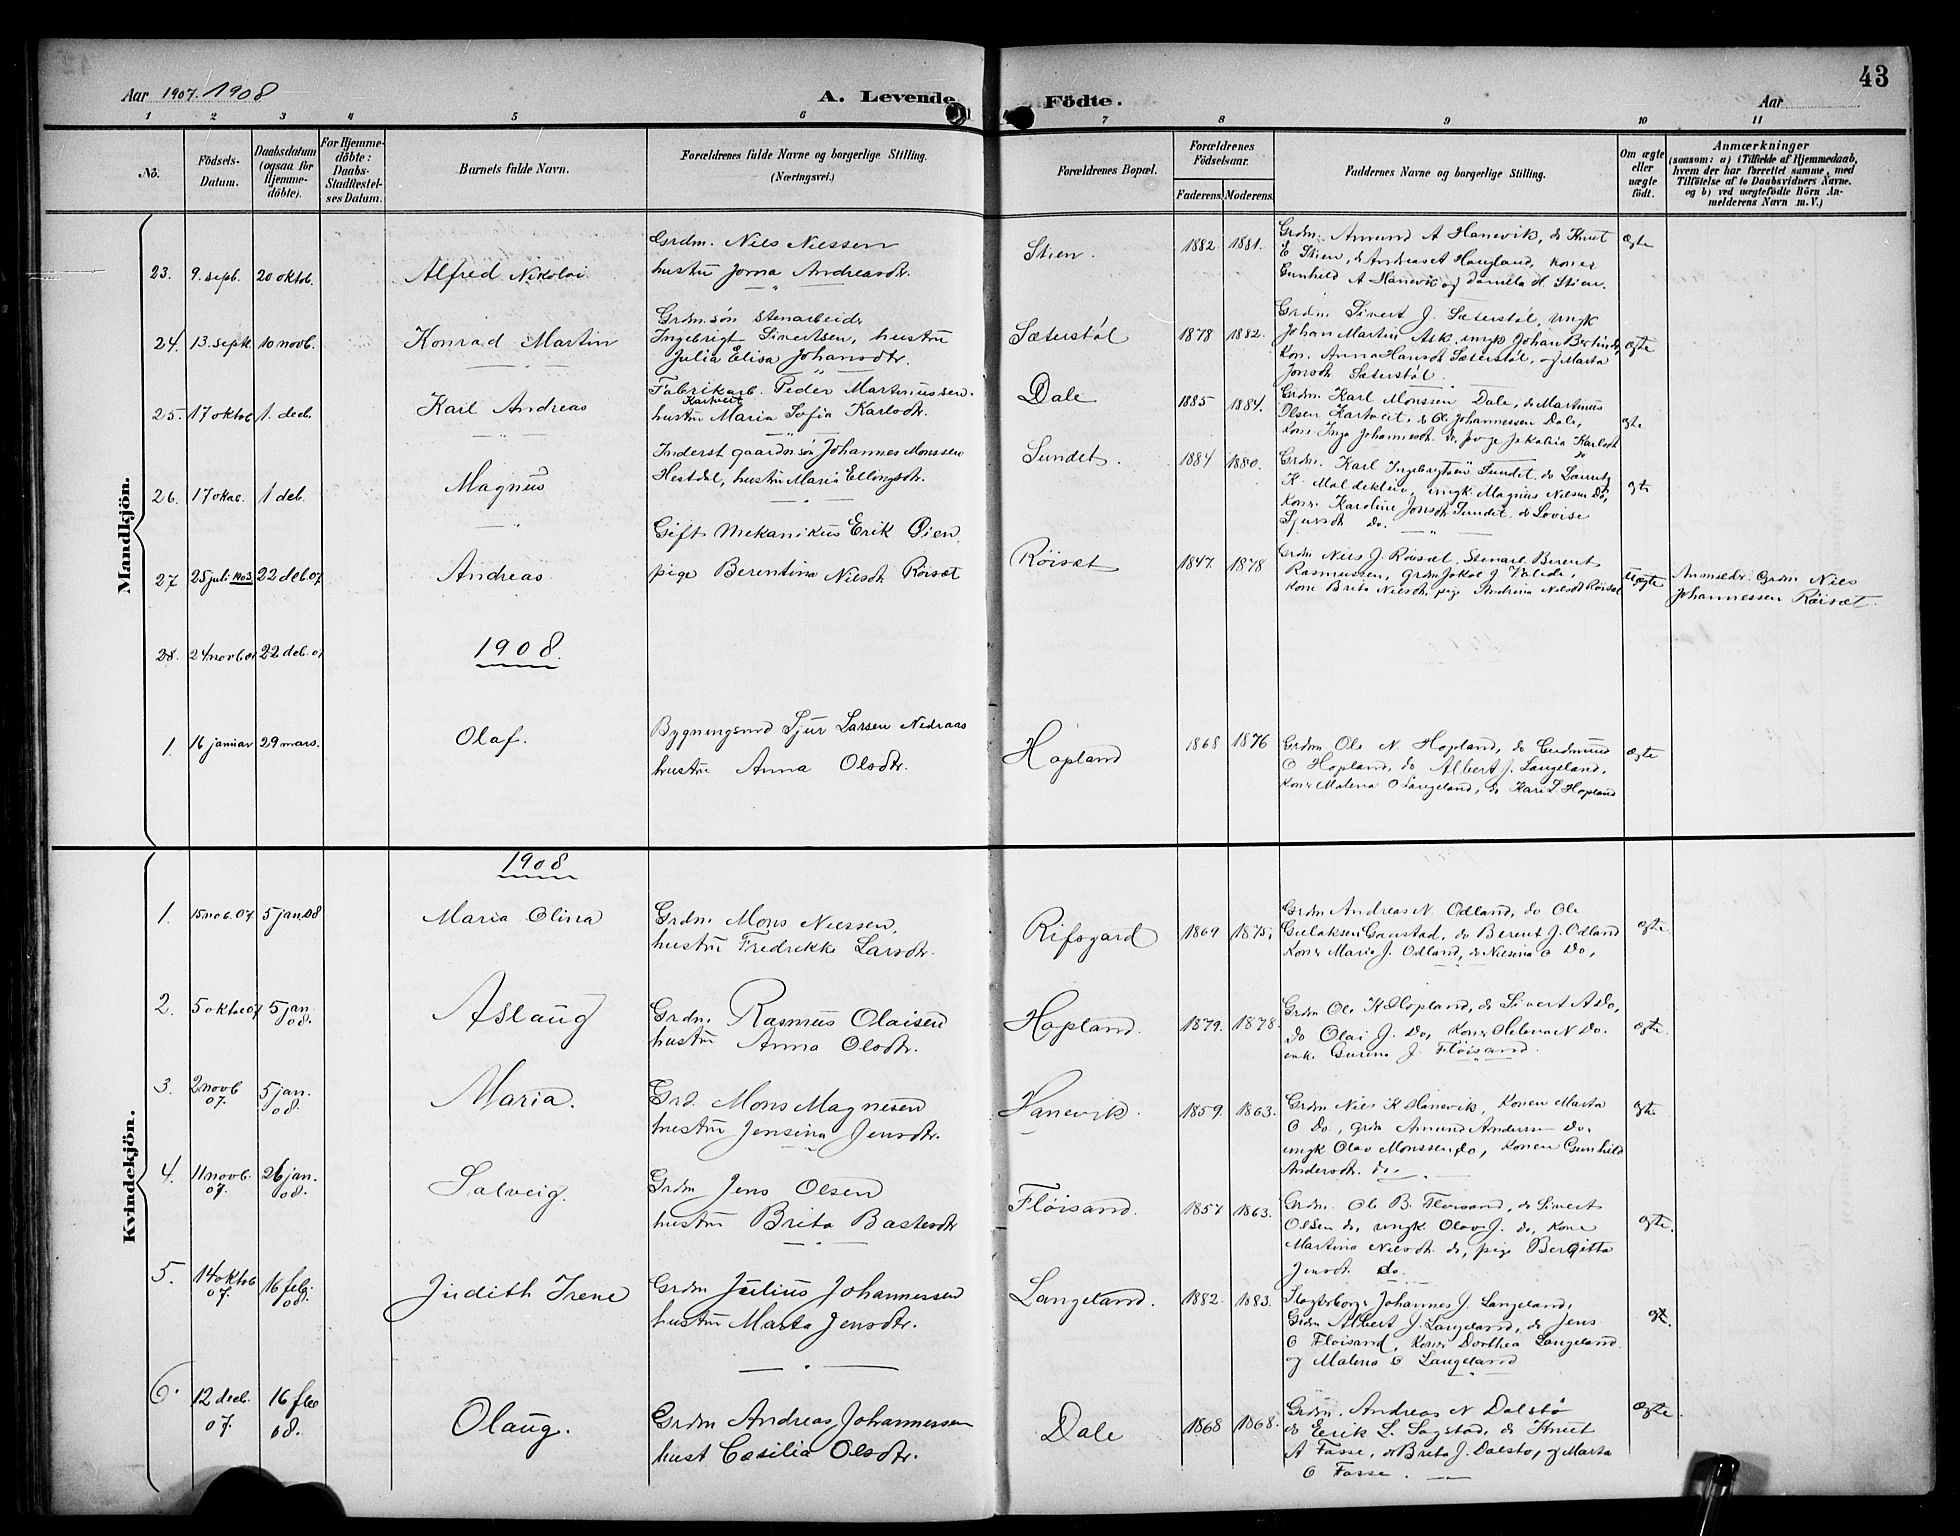 Aar 1907. 1908
A. Levende Födte.
Aar
43
1 2 3 4 5 6 7 8 9 10 11
Nö.
Födsels-Datum.
Daabsdatum (ogsaa for Hjemme-döbte).
For Hjemme-döbte: Daabs-Stadfæstel-ses Datum.
Barnets fulde Navn.
Forældrenes fulde Navne og borgerlige Stilling. (Næringsvei.)
Forældrenes Bopæl.
Forældrenes Födselsaar.
Faderens. Moderens.
Faddernes Navne og borgerlige Stilling.
Om ægte eller uægte födt.
Anmærkninger
(saasom: a) i Tilfælde af Hjemmedaab, hvem der har forrettet samme, med Tilföielse af to Daabsvidners Navne. og b) ved uægtefödte Börn An-melderens Navn m. V.)
Mandkjön.
23. 9. sepb. 20 oktob. Alfred Nikolai
Grdm. Nils Nilssen
hustru Jorna Andreasdtr.
Stien. 1882 1881.
Grdm. Amund A Hanevik, do Knut
E Stien, do Andreas A Haugland, koner
Gunhild A Hanevik og Daniella H. Stien.
ægte
24. 13. septb. 10 novb. Konrad Martin
Grdm søn stenarbeidr
Ingebrigt Sivertsen, hustru
Julia Elisa Johansdtr.
Sæterstøl 1878 1882.
Grdm. Sivert J. Sæterstøl, ungk
Johan Martin Ask, ungk Johan Bertin do,
Kon. Anna Hansdt Sæterstøl, og Marta
Jonsdt Sæterstøl.
ægte
25. 17 oktob 1. decb. Karl Andreas
Fabrikarb. Peder Martinussen
Kartveit
hustru Maria Sofia Karlsdtr.
Dale 1885 1884.
Grdm. Karl Monssen Dale, do Martinus
Olsen Kartveit, do Ole Johannessen Dale,
Kone Inga Johannesdt. do, pige Jakobia Karlsdt
do
ægte
26. 17 okt. 1 deb. Magnus
Inderst gaardm søn Johannes Monssen
Hestdal, hustru Maria Ellingsdtr.
Sundet. 1884 1880.
Grdm. Karl Ingebrigtsen Sundet, do Lauritz
K. , ungk. Magnus Nilsen Do,
Koner Karoline Jonsdt Sundet. do Lovise
Sjursdt do.
ægte
27 25 juli 1903. 22 deb. 07 Andreas
Gift Mekanikus Erik Øien,
pige Berentina Nilsdt Røisæt
Røisæt 1847. 1878
Grdm Nils J. Røisæt, Stenarb. Berent
Rasmussen, Grdm Jakob J ,
kone Brita Nilsdt, pige Andrina Nilsdt Røisæt
Uægte
Anmeldr: Grdm Nils
Johannessen Røisæt.
28. 24 novb. 07 22 deb. 07
1908.
1. 16 januar 29 mars. Olaf.
Bygningsmd Sjur Larsen Nedraas
hustru Anna Olsdtr.
Hopland 1868 1876
Grdm Ole N. Hopland, do Gudmund
O Hopland, do Albert J. Langeland,
Koner Malena O Langeland, do Kari L. Hopland
ægte
Kvindekjön.
1908
1. 15 nob. 07 5 jan. 08 Maria Olina
Grdm. Mons Nilssen,
hustru Fredrikke Larsdtr.
Rifsgard 1869 1875,
Grdm Andreas N. Odland, do Ole
Gulaksen Gaustad, do Berent J. Odland
Koner Maria J. Odland, do Nilsina O Do,
ægte
2. 5 oktob 07 5 jan 08. Aslaug
Grdm. Rasmus Olaisen
hustru Anna Olsdtr.
Hopland. 1879. 1878.
Grdm Ole K Hopland, do Sivert A Do,
Do Olai J. Do, koner Helena N Do.
enke Gurina J. Fløisand.
ægte
3. 2 novb 07. 5 jan. 08. Maria.
Grd. Mons Magnesen
hustru Jensina Jensdtr.
Hanevik. 1859. 1863.
Grdm Nils K Hanevik, Konen Marta
O Do, grdm Amund Andersen Do.
ungk Olav Monssen do, Konen Gunhild
Andersdt. do.
ægte
4. 11 novb. 07. 26 jan. 08. Solveig.
Grdm Jens Olsen
hustru Brita Bastesdtr
Fløisand. 1857 1863.
Grdm. Ole B. Floisand, do Sivert
Olsen do, ungk. Olav J. do, kone
Martina Nilsdt. do, pige Bergitta
Jensdt. do.
ægte.
5. 14 oktob 07. 16 feb. 08. Judith Irene
Grdm Julius Johannessen
hustru Marta Jensdtr.
Langeland. 1882. 1883.
Johannes J. Langeland,
Grdm Albert J. Langeland, do Jens
O Floisand, Koner Dorthea Langeland
og Malena O Langeland
ægt.
6. 12 decb. 07. 16 feb 08. Olaug.
Grdm Andreas Johannessen
hust Cæsilia Olsdtr.
Dale 1868 1868.
Grdm. Andreas N Dalstø
do Erik L. Sagstad, do Knut
A Fosse, do Brita J. Dalstø, og Marta
O Fosse.
ægte.